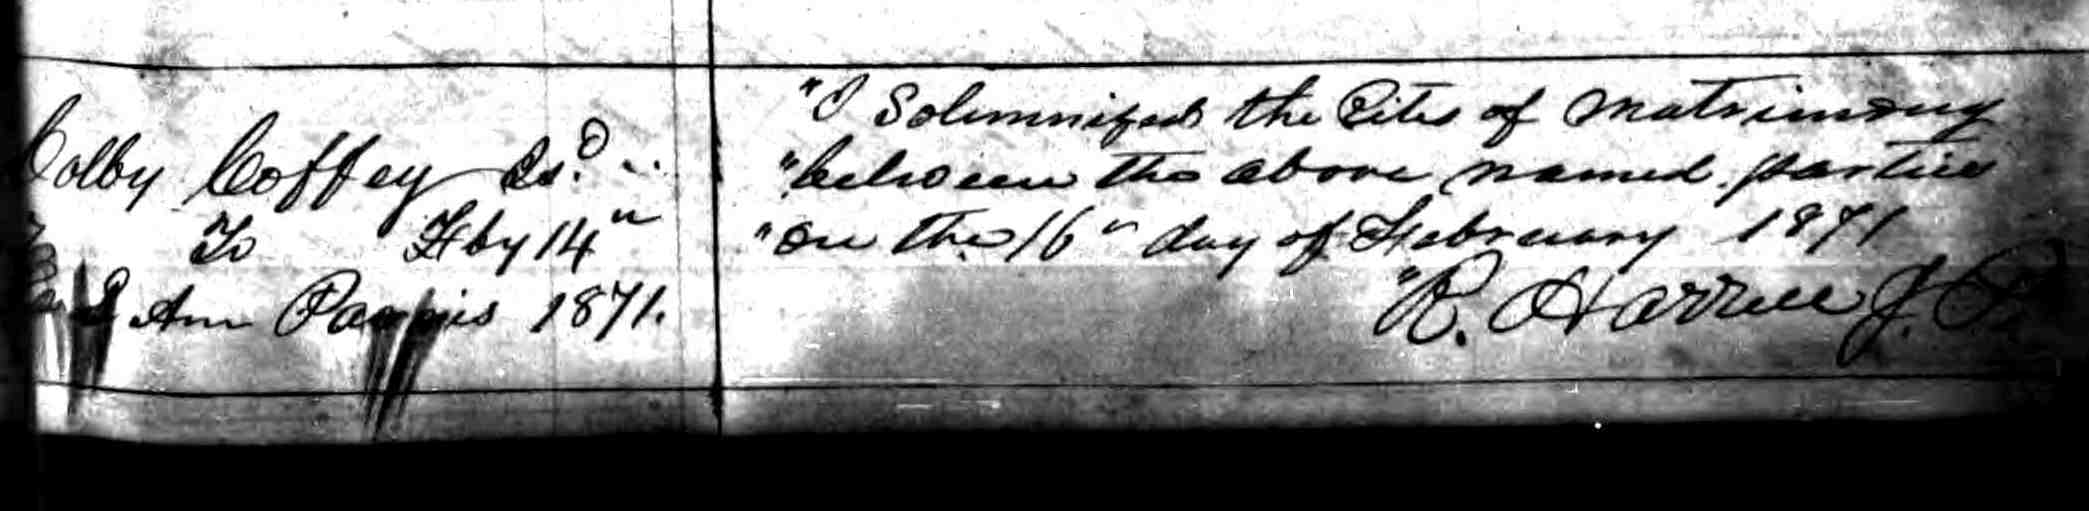 Colby Coffey Isd.
To Feby 14"
Ann 1871.
"I Solemnized the Rites of Matrimony
"between the above named parties
"on the 16" day of February 1871
"R. Harrell J. P.